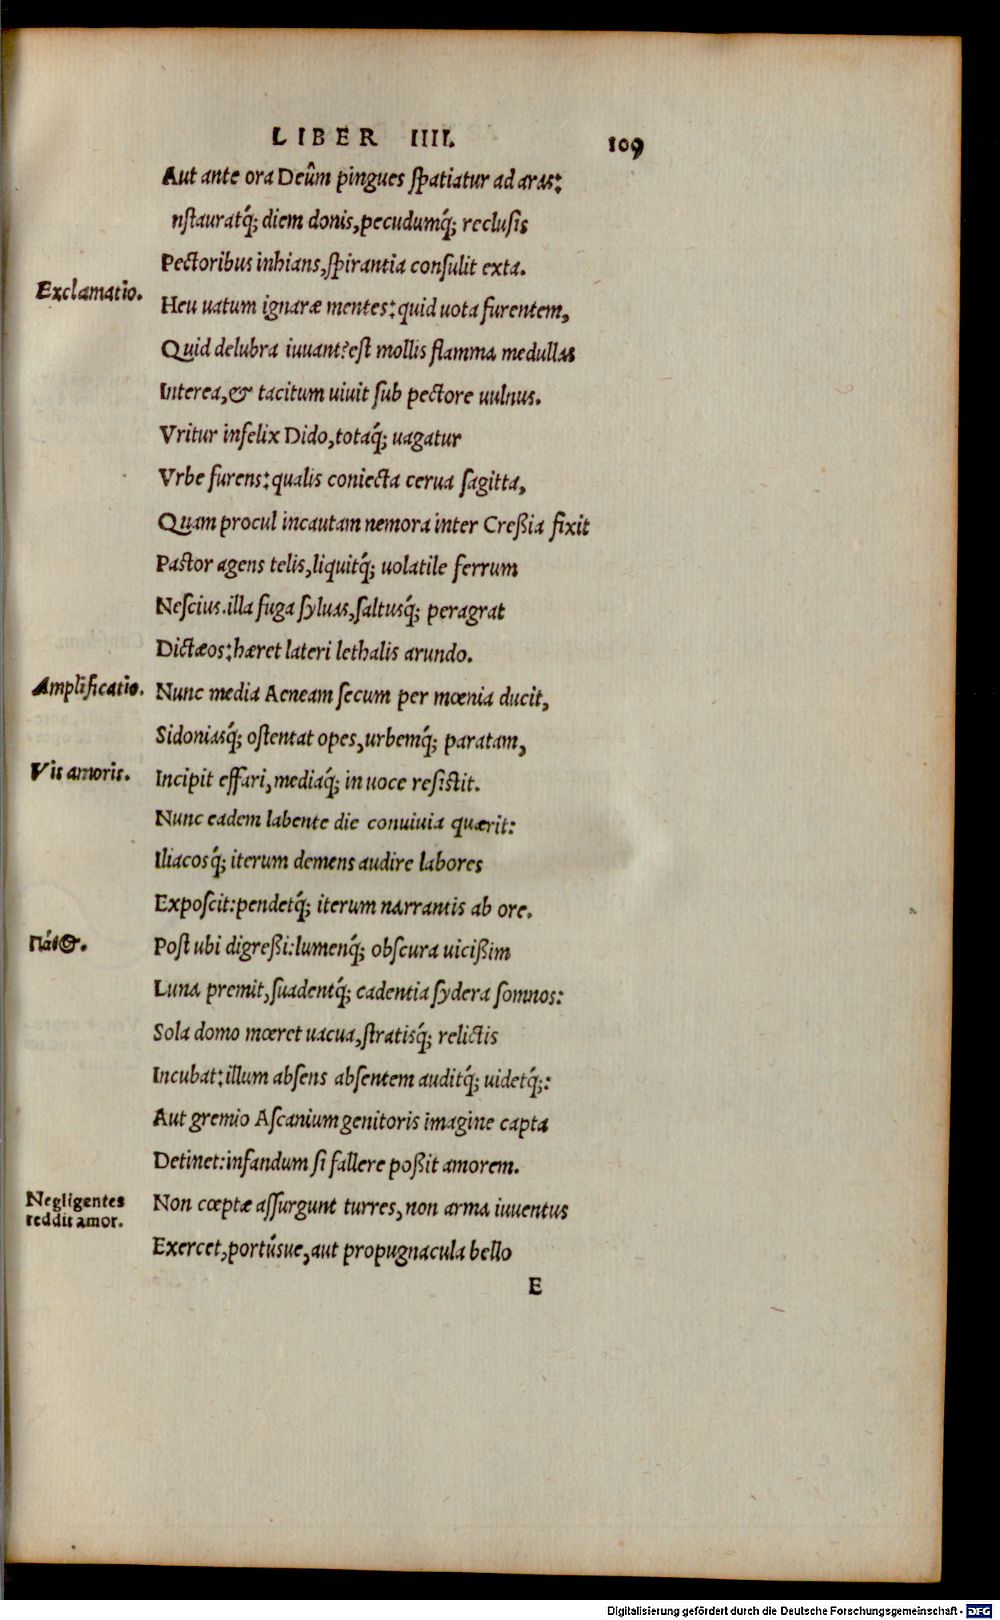 LIBER IIII. 109
Aut ante ora Deûm pingues ſpatiatur ad aras:
nſtauratq́; diem donis, pecudumq́; recluſis
Pectoribus inhians, ſpirantia conſulit exta.
Exclamatio.
Heu uatum ignaræ mentes: quid uota furentem,
Quid delubra iuuant? eſt mollis flamma medullas
Interea, & tacitum uiuit ſub pectore uulnus.
Vritur infelix Dido, totaq́; uagatur
Vrbe furens: qualis coniecta cerua ſagitta,
Quam procul incautam nemora inter Creßia fixit
Paſtor agens telis, liquitq́; uolatile ferrum
Neſcius. illa fuga ſyluas, ſaltusq́; peragrat
Dictæos: hæret lateri lethalis arundo.
Amplificatio.
Nunc media Aeneam ſecum per mœnia ducit,
Sidoniasq́; oſtentat opes, urbemq́; paratam,
Vis amoris.
Incipit effari, mediaq́; in uoce reſiſtit.
Nunc eadem labente die conuiuia quærit:
Iliacosq́; iterum demens audire labores
Expoſcit: pendetq́; iterum narrantis ab ore.
Πάθος.
Poſt ubi digreßi: lumenq́; obſcura uicißim
Luna premit, ſuadentq́; cadentia ſydera ſomnos:
Sola domo mœret uacua, ſtratisq́; relictis
Incubat: illum abſens abſentem auditq́; uidetq́;:
Aut gremio Aſcanium genitoris imagine capta
Detinet: infandum ſi fallere poßit amorem.
Negligentes
reddit amor.
Non cœptæ aſſurgunt turres, non arma iuuentus
Exercet, portúsue, aut propugnacula bello
E
Digitalisierung gefördert durch die Deutsche Forschungsgemeinschaft - DFG